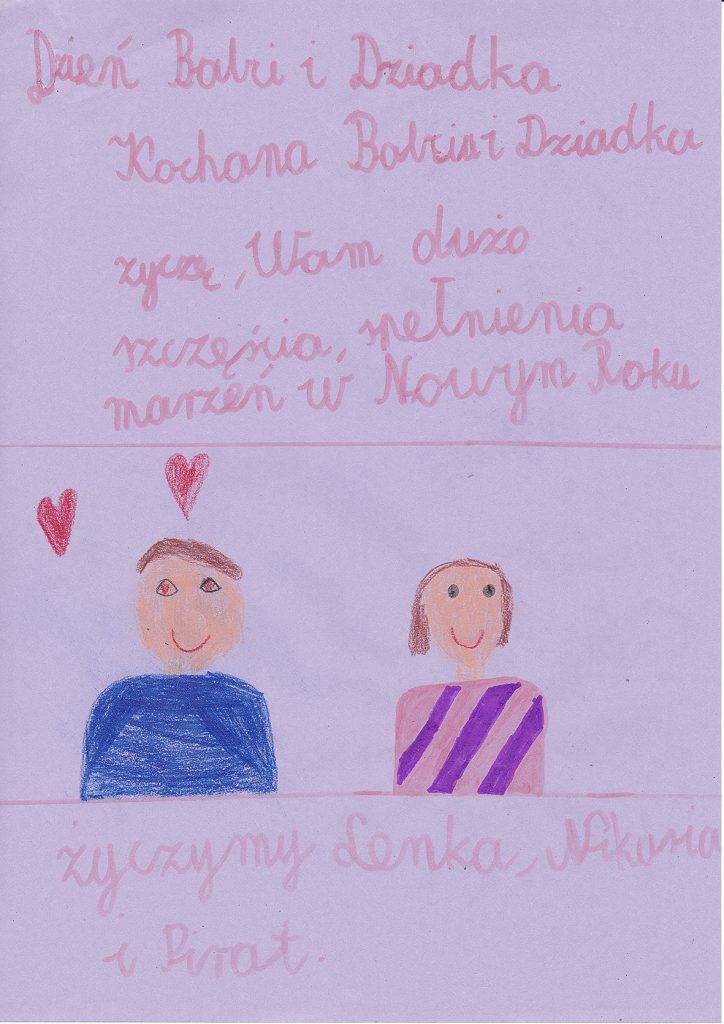 Dzień Babci i Dziadka
Kochana Babciu i Dziadku
życzę, Wam dużo
szczęścia, spełnienia
marzeń w Nowym Roku
życzymy Lenka, Nikosia
i Pirat.